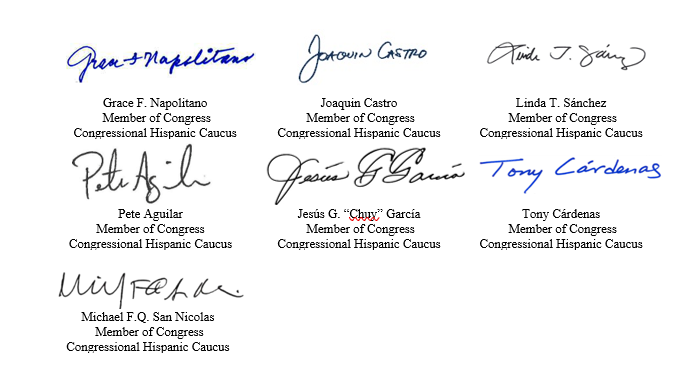 Grace F Napolitano
JOAQUIN CASTRO
Linda T. Sánchez
Grace F. Napolitano
Member of Congress
Congressional Hispanic Caucus
Joaquin Castro
Member of Congress
Congressional Hispanic Caucus
Linda T. Sánchez
Member of Congress
Congressional Hispanic Caucus
Pete Aguilar
Jesús G García
Tony Cárdenas
Pete Aguilar
Member of Congress
Congressional Hispanic Caucus
Jesús G. “Chuy” García
Member of Congress
Congressional Hispanic Caucus
Tony Cárdenas
Member of Congress
Congressional Hispanic Caucus
Michael F.Q. San Nicolas
Member of Congress
Congressional Hispanic Caucus